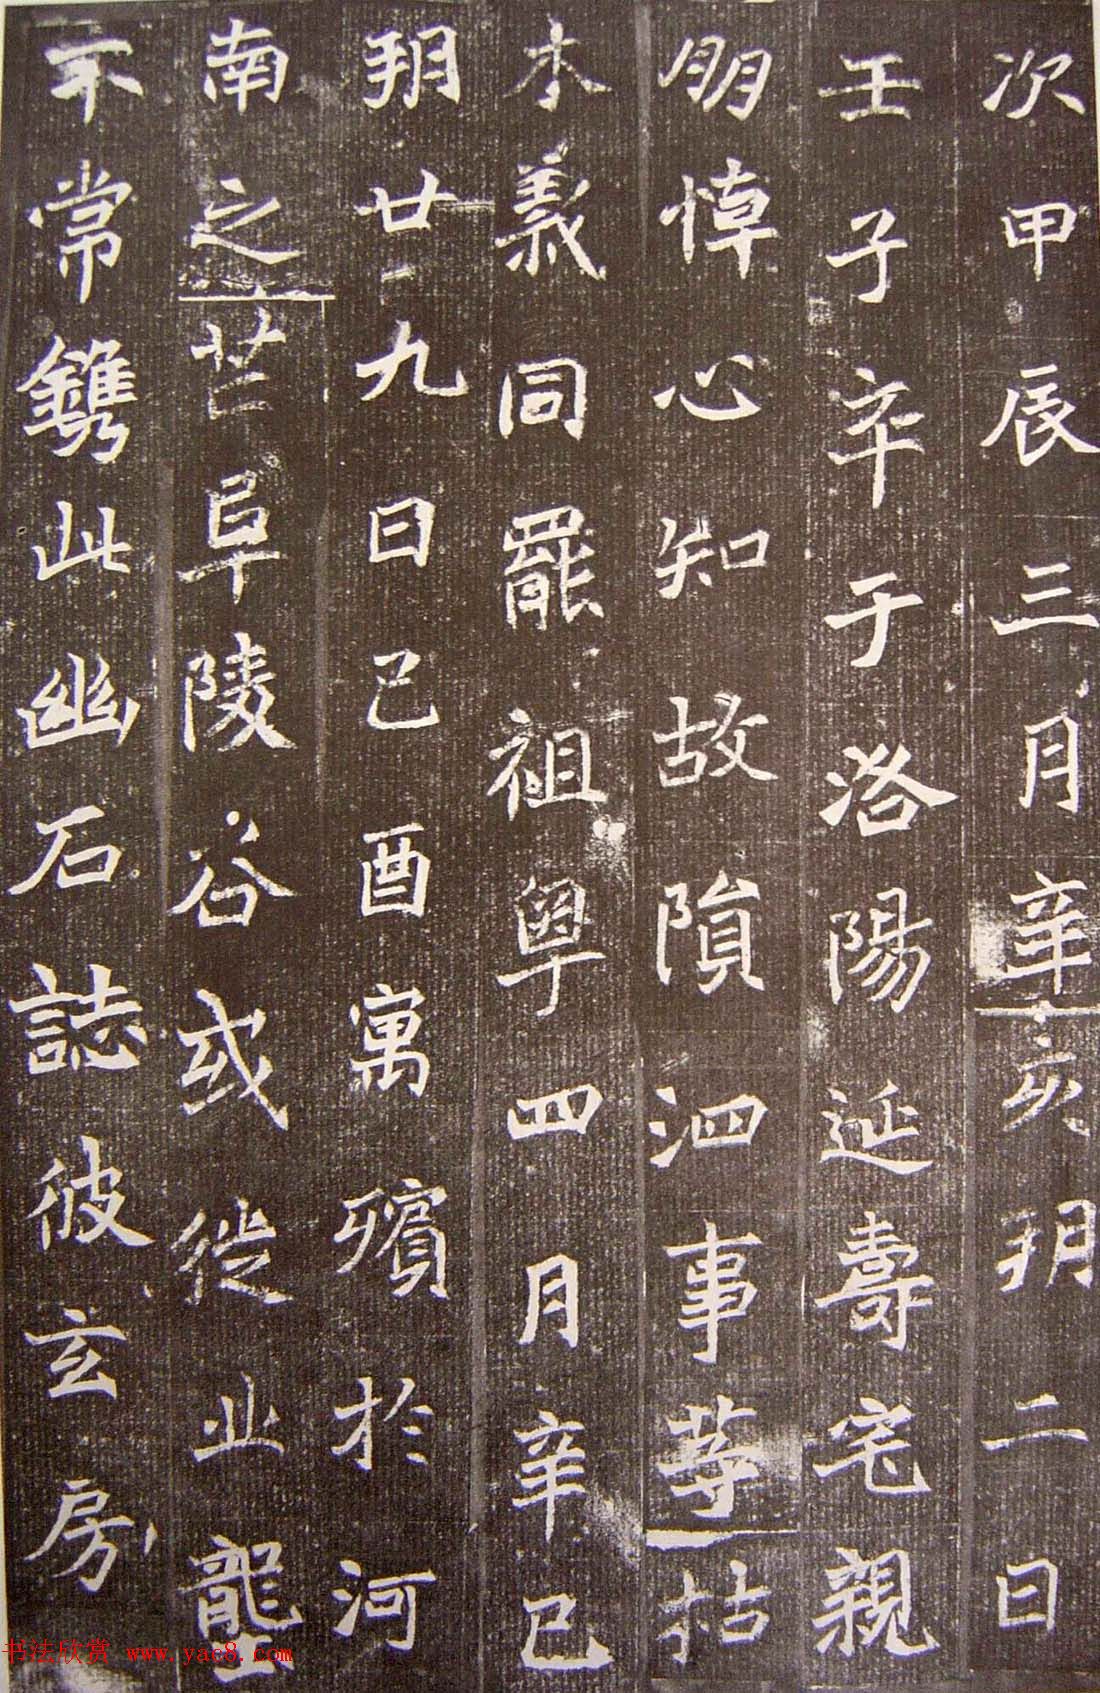 次甲辰三月辛亥朔二日
壬子卒于洛陽延壽宅親
朋悼心知故隕泗事等拈
木義同罷祖粤四月辛巳
朔廿九日己酉寓殯於河
南之芒阜陵谷或徙业壟
不常鐫此幽石誌彼玄房
书法欣赏 www.yac8.com